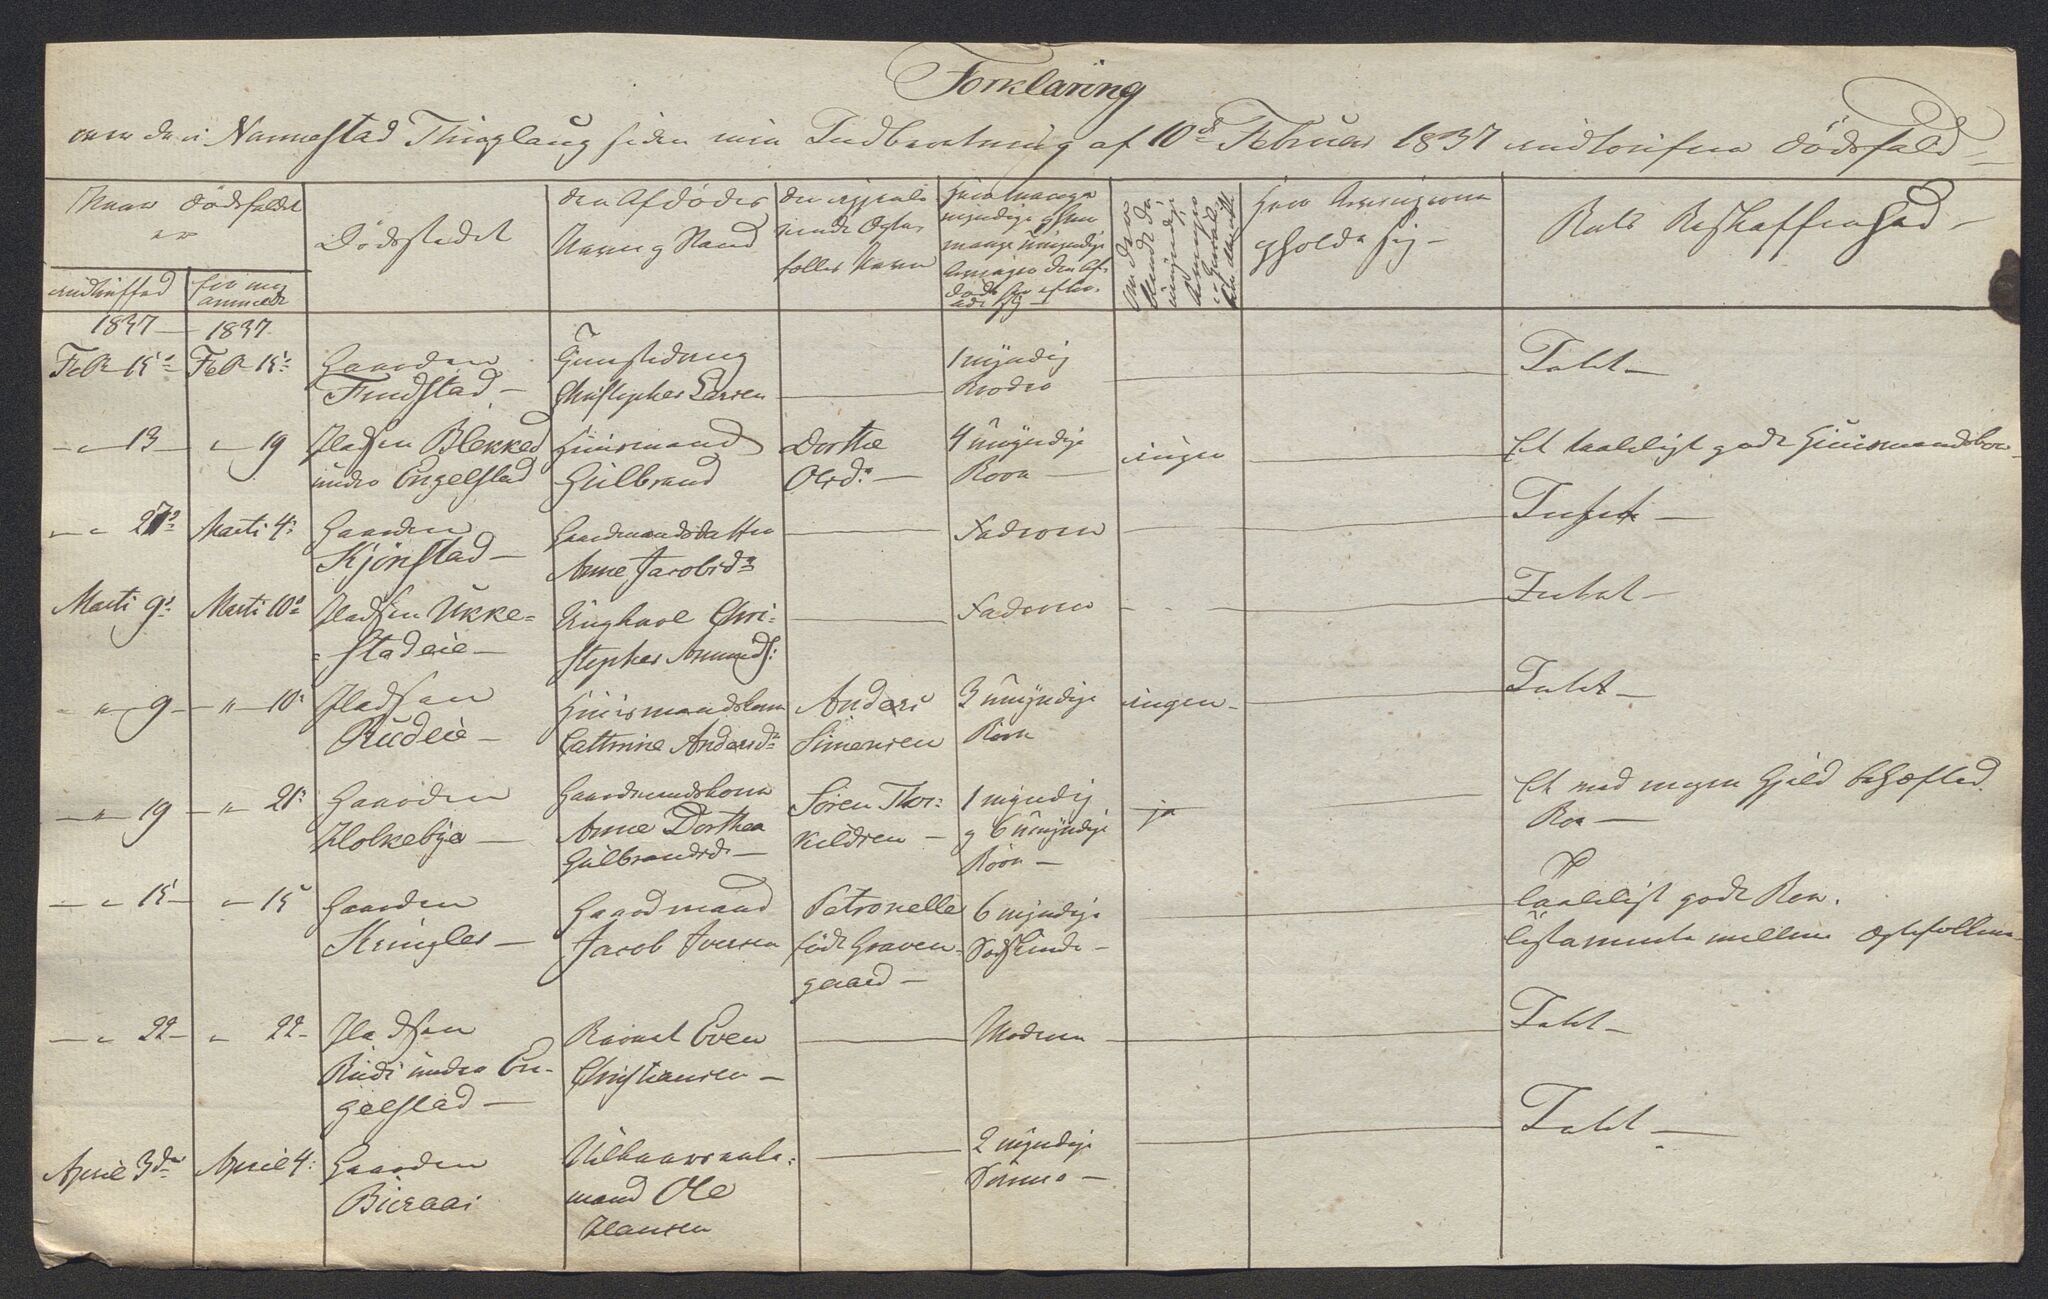 Forklaring
over de i Nannestad Thinglaug siden min Indberetning af 10de Februar 1837 indtrufne Dødsfald
Naar Dødsfaldet
er
indtruffed
for mig anmeldt
Dødsstedet
den Afdødes
Navn og Stand
den igjenle-
vende Ægte-
fælles Navn
Hvor mange
myndige og hvor
mange umyndige
Arvinger den Af-
døde har efter-
ladt sig
Hvor Arvingerne
opholde sig
Boets Beskaffenhed
1837 1837
Feb. 15de Feb. 15de Gaarden Findstad Ungkarl? Christopher Larsen 1 myndig Broder Intet
" 13 " 19 Pladsen Blekked under Engelstad Huusmand Gulbrand Dorthe Olsd. 4 umyndige Børn ingen Et taaleligt godt Huusmandsboe
" 27de Marti 4de Gaarden Kjønstad Gaardmandsdatter Anne Jacobsd. Faderen Intet
Marti 9de Marti 10de Pladsen Ukkestadeie Ungkarl Christopher Amunds: Faderen Intet
" 9 " 10de Pladsen Rudeie Huusmandskone Cathrine Andersd. Anders Simensen 3 umyndige Børn ingen Intet
" 19 " 21de Gaarden Holkebye Gaardmandskone Anne Dorthea Gulbrandsd. Søren Thorkildsen 1 myndig og 6 umyndige Børn ja Et med megen Gjeld behæfted Boe
" 15 " 15 Gaarden Kringler Gaardmand Jacob Iversen Petronelle født Gravengaard 6 myndige Sødskende Taaleligt godt Boe. Testamente mellem Ægtefollene
" 22 " 22 Pladsen Rudi under Engelstad Barnet Even Christiansen Moderen Intet
April 3die April 4de Gaarden Bieraas Vilkaarsmand Ole Hansen 2 myndige Sønner Intet